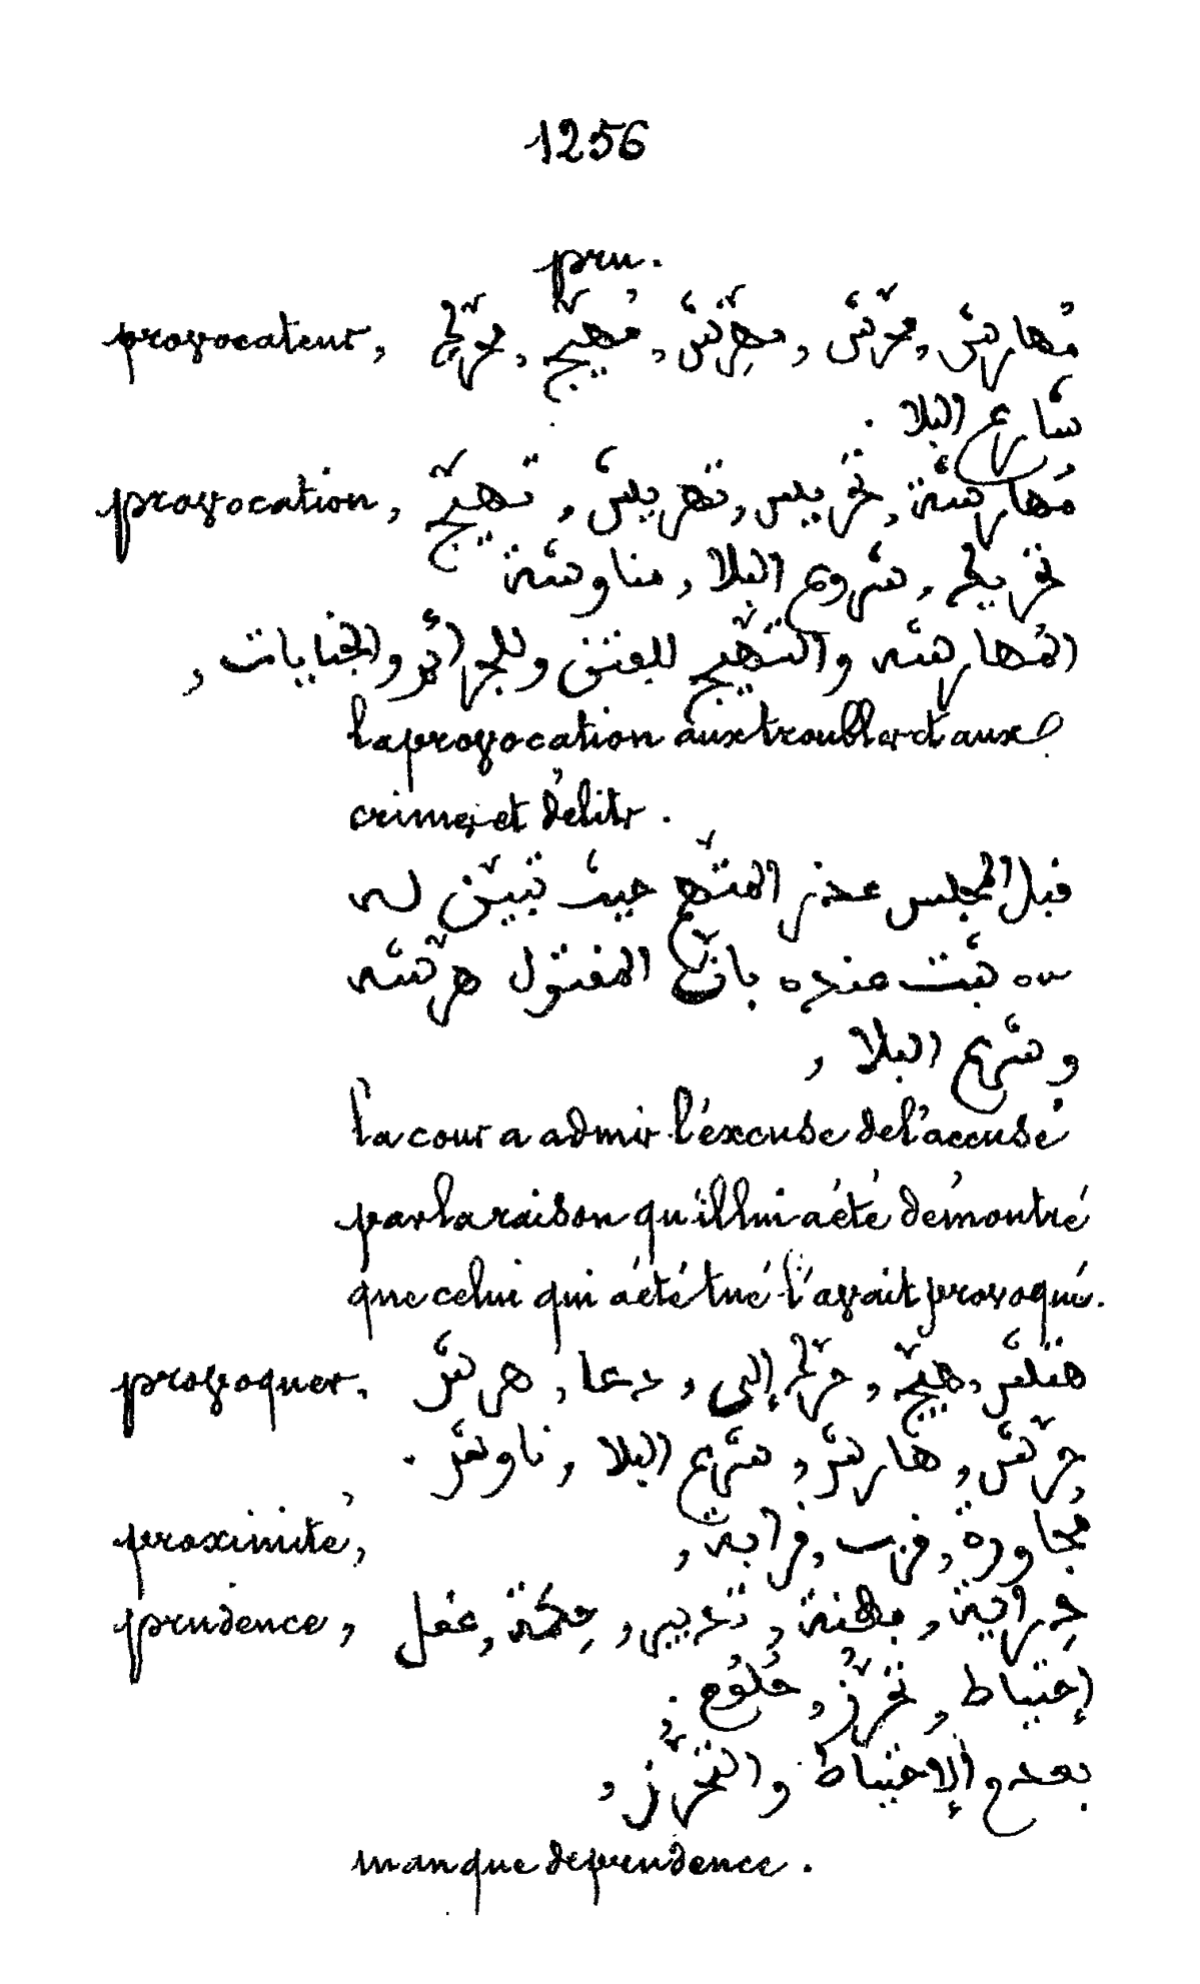 1256
pru.
provocateur, مُهارش, محرّش, مهِرّش, مُهيّج, محرّك
شارع البلا.
provocation, مُهارشة, تحريش, تهريش, تهيّج
تحريك, شروع البلا, مناوشة
المُهارشه والتّهيّج للفتن وللجرائم والجنايات,
la provocation aux troubles et aux
crimes et délits.
قبل المجلس عذر المتهم حيث تبيّن له
ثبت عنده بانّ المقتول هرّشه
وشرع البلا,
la cour a admis l'éxcuse de l'accusé
par la raison qu'il lui a été démontré
que celui qui a été tué l'avait provoqué.
provoquer. هيّج, حرّك إلى, دعا, هرّش
حرّش, هارش, شرع البلا, ناوش.
proximité, مُجاورة, قرب, قرابة,
prudence, دِراية, تدبير, حِكمة, عقل
إحتياط, تحرّز,
بعدم الإحتياط والتحرّز,
manque de prudence.